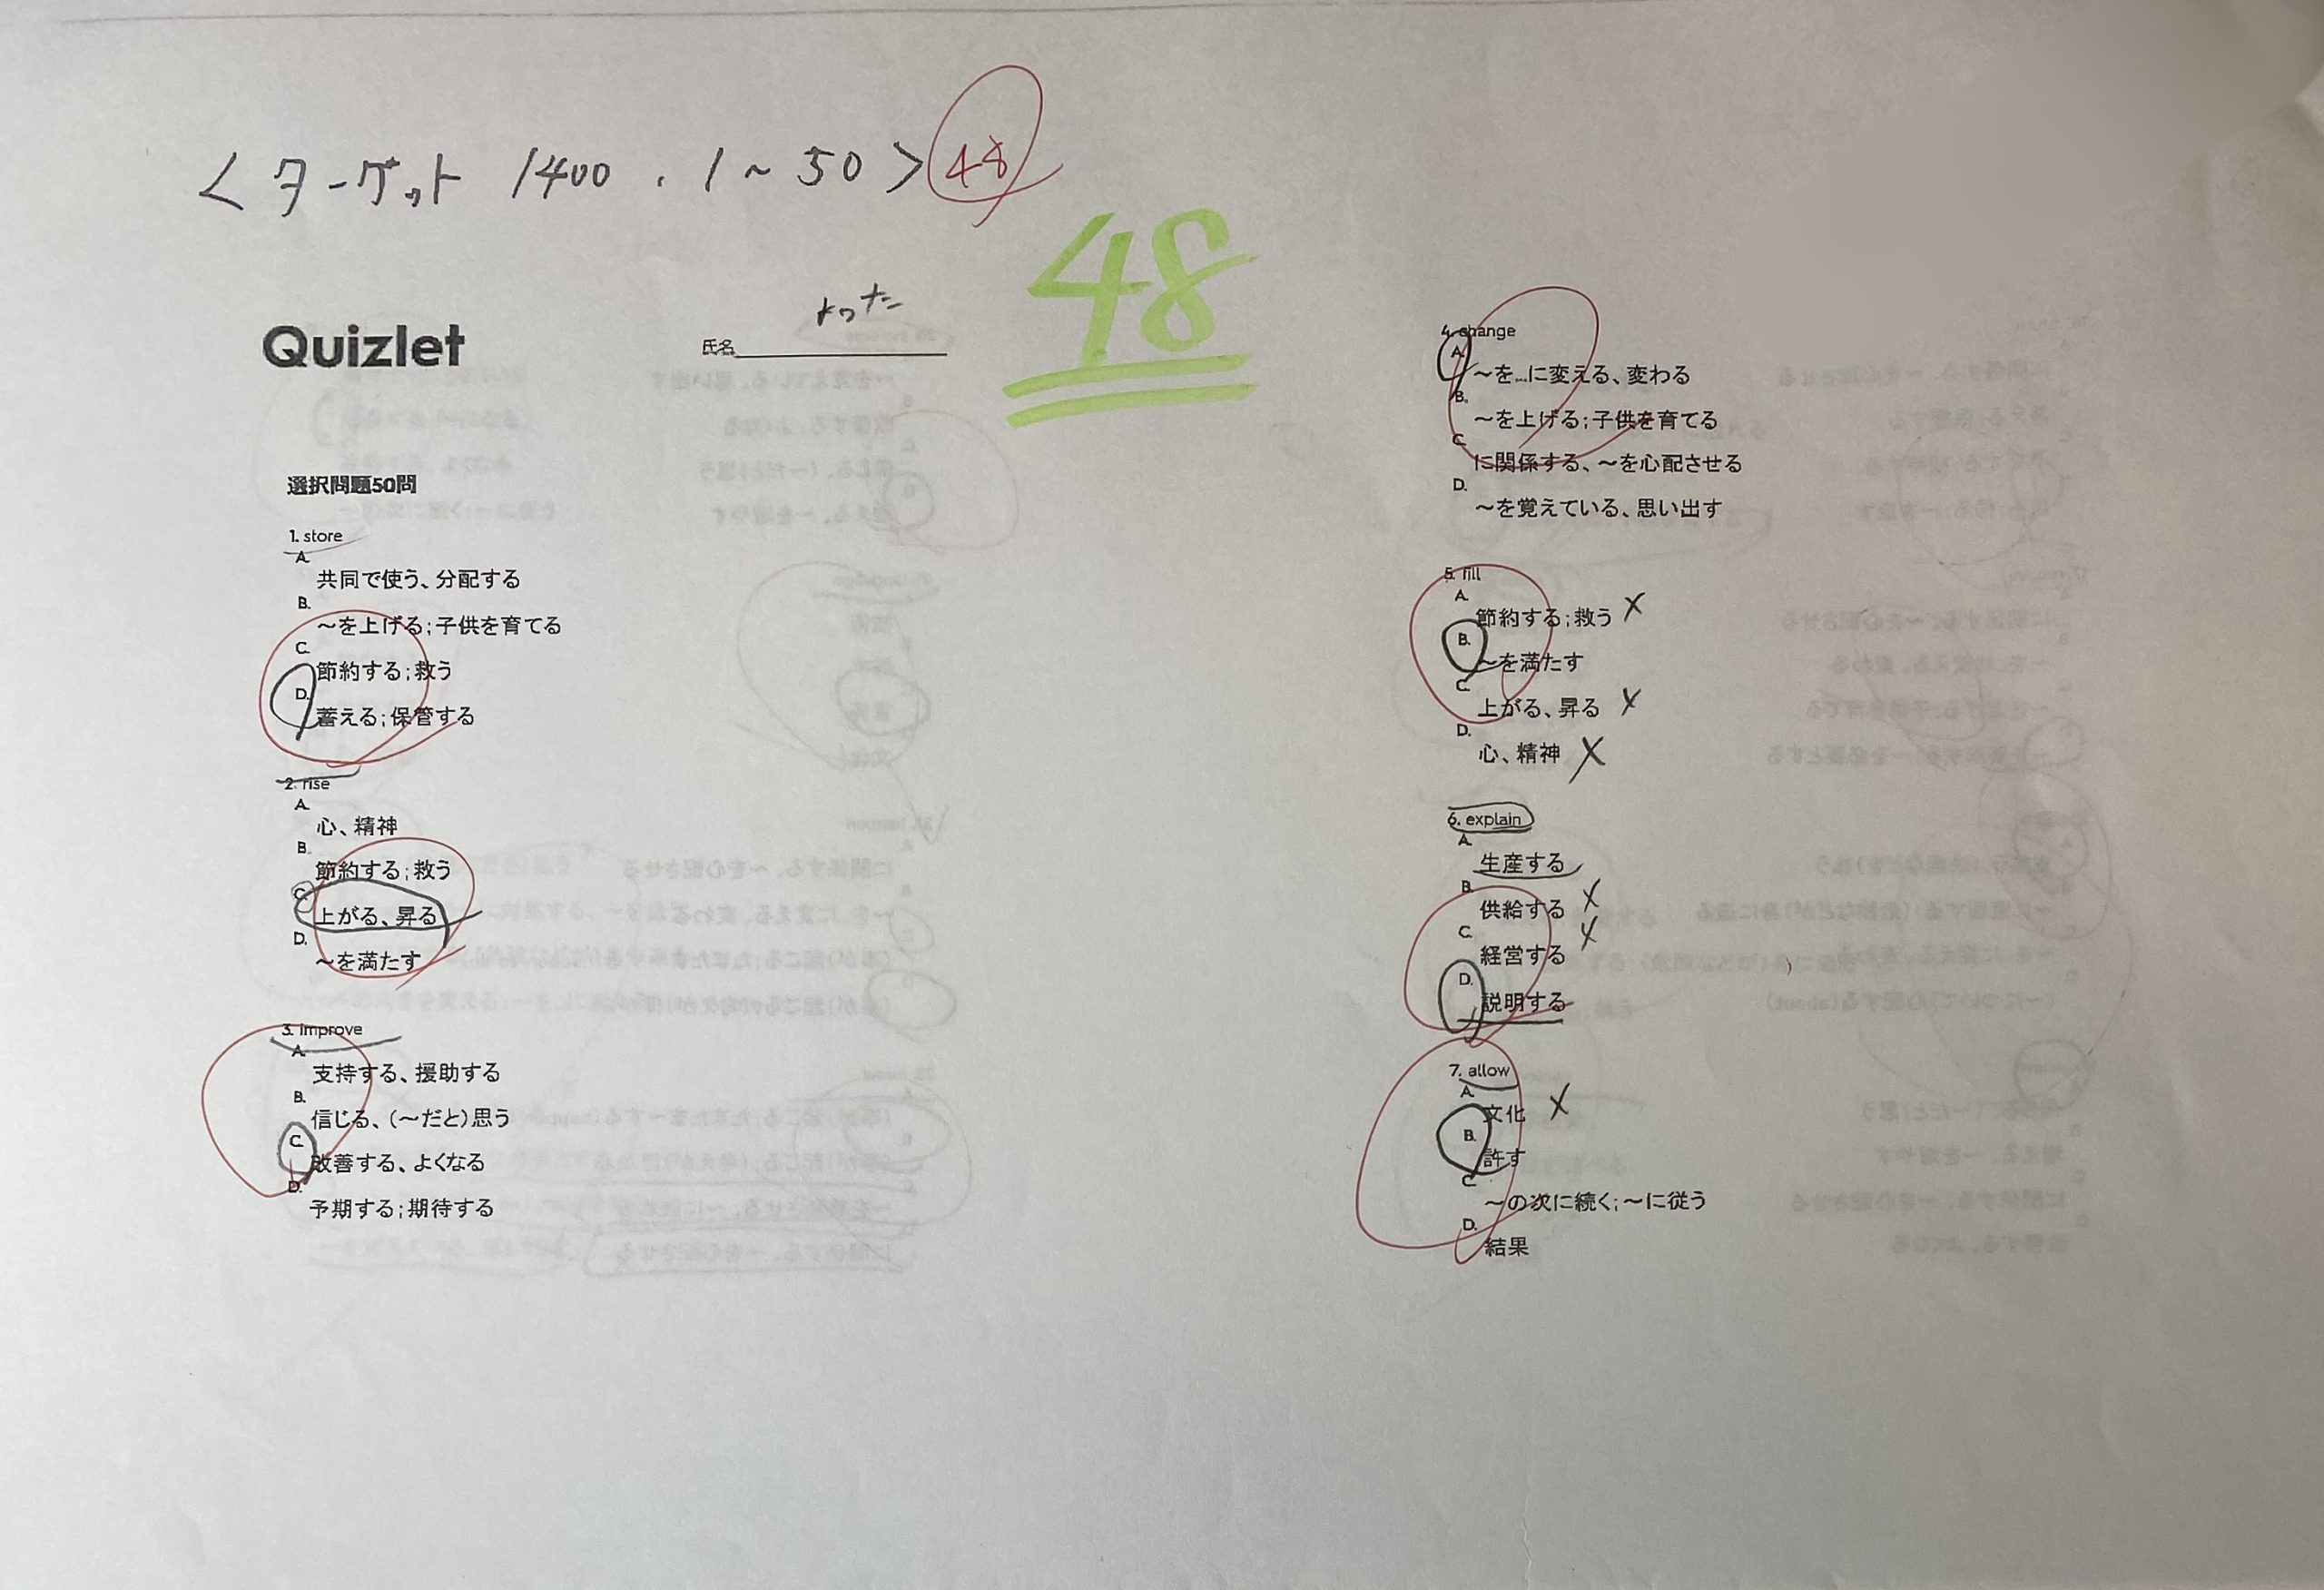 <ターゲット 1400 . 1~50> 48
48
Quizlet
氏名
選択問題50問
1. store
A.
共同で使う、分配する
B.
～を上げる;子供を育てる
C.
節約する;救う
D.
蓄える;保管する
2. rise
A.
心、精神
B.
節約する;救う
C.
上がる、昇る
D.
～を満たす
3. improve
A.
支持する、援助する
B.
信じる、(～だと)思う
C.
改善する、よくなる
D.
予期する;期待する
4. change
A.
～を…に変える、変わる
B.
～を上げる;子供を育てる
C.
に関係する、～を心配させる
D.
～を覚えている、思い出す
5. fill
A.
節約する;救う
B.
～を満たす
C.
上がる、昇る
D.
心、精神
6. explain
A.
生産する
B.
供給する
C.
経営する
D.
説明する
7. allow
A.
文化
B.
許す
C.
～の次に続く;～に従う
D.
結果